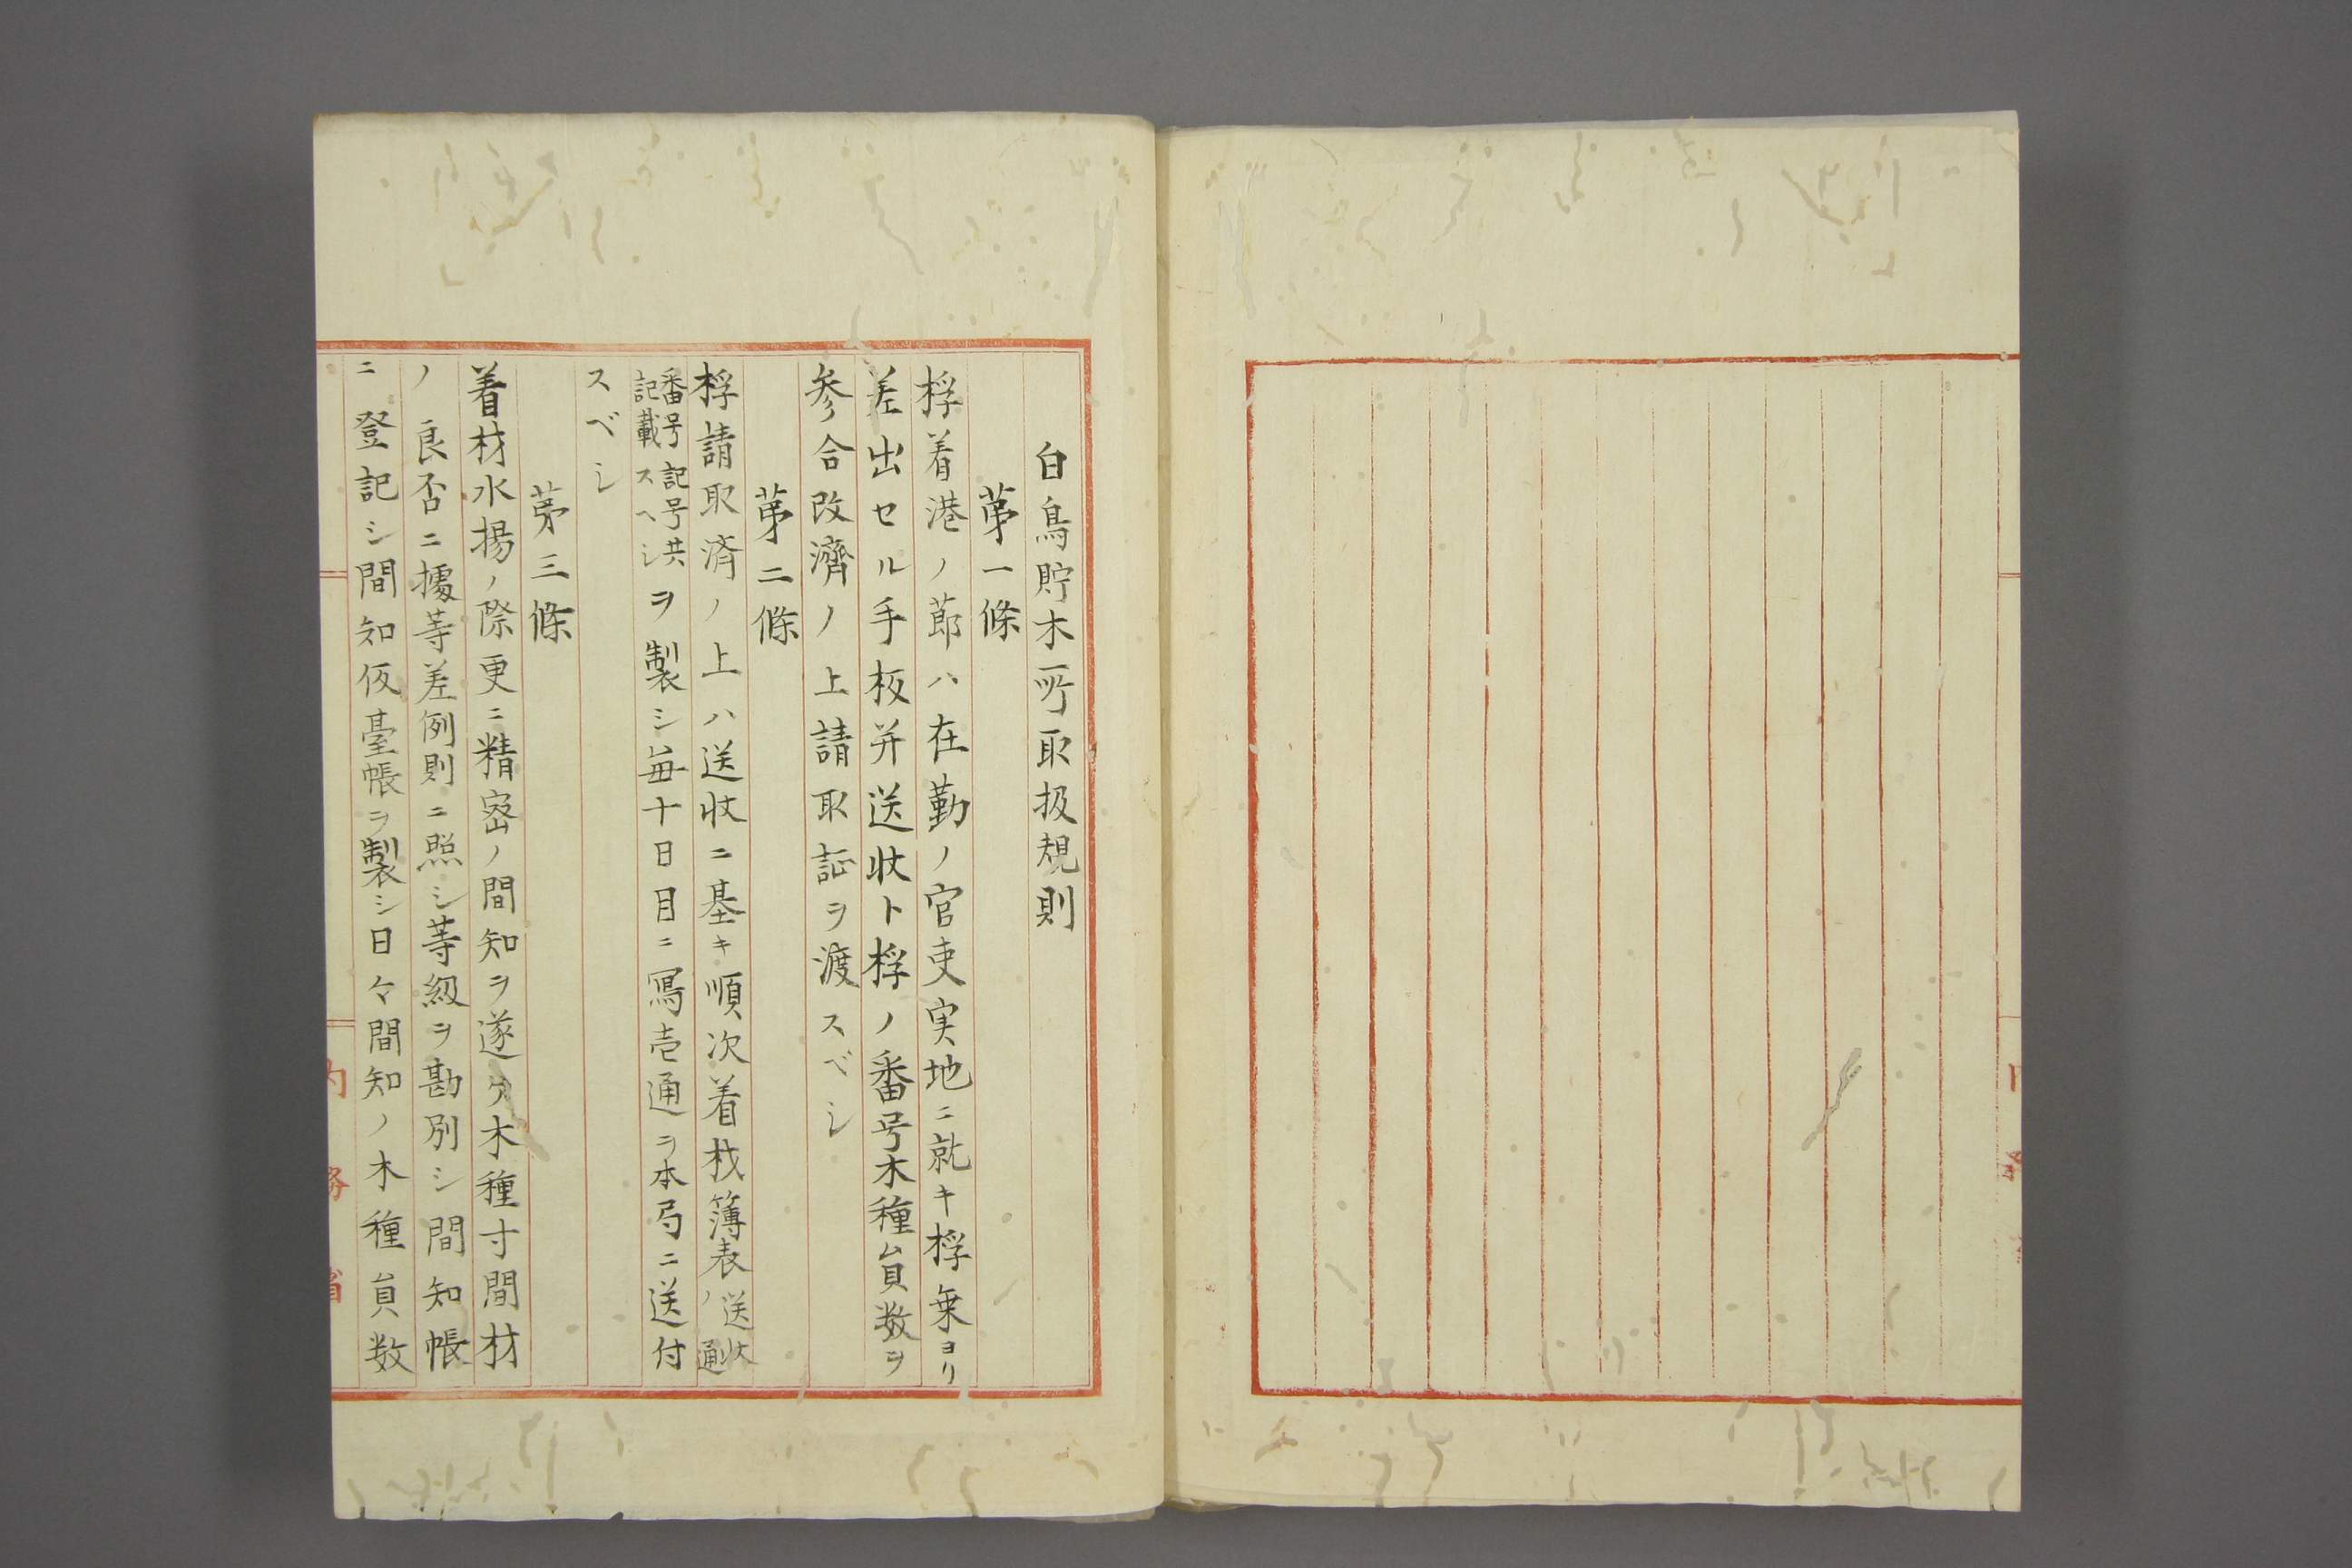 白鳥貯木所取扱規則
第一條
桴着港ノ節ハ在勤ノ官吏実地ニ就キ桴乗ヨリ
差出セル手板并送状ト桴ノ番号木種員数ヲ
参合改濟ノ上請取証ヲ渡スベシ
第二條
桴請取済ノ上ハ送状ニ基キ順次着材簿表送状ノ通
番号記号共記載スヘシヲ製シ毎十日目ニ寫壱通ヲ本局ニ送付
スベシ
第三條
着材水揚ノ際更ニ精密ノ間知ヲ遂ケ木種寸間材
ノ良否ニ據等差例則ニ照シ等級ヲ勘別シ間知帳
ニ登記シ間知仮臺帳ヲ製シ日々間知ノ木種員数
内務省